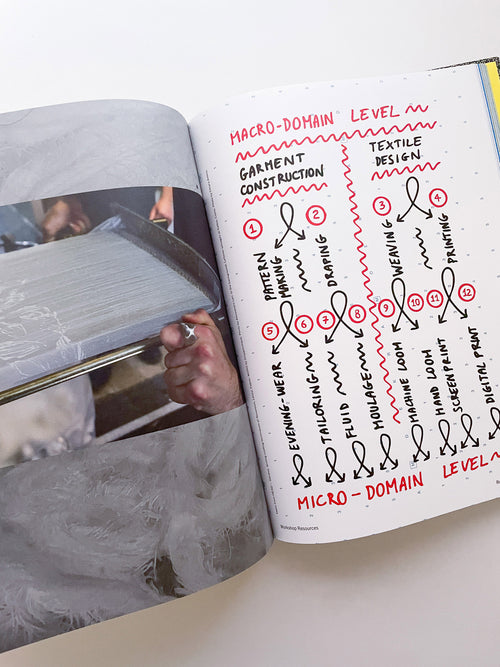 MACRO-DOMAIN LEVEL
GARMENT
CONSTRUCTION
TEXTILE
DESIGN
1
2
3
4
PATTERN
MAKING
DRAPING
WEAVING
PRINTING
5
6
7
8
9
10
11
12
EVENING-WEAR
TAILORING
FLUID
MOULAGE
MACHINE LOOM
HAND LOOM
SCREENPRINT
DIGITAL PRINT
MICRO-DOMAIN LEVEL
Workshop Resources